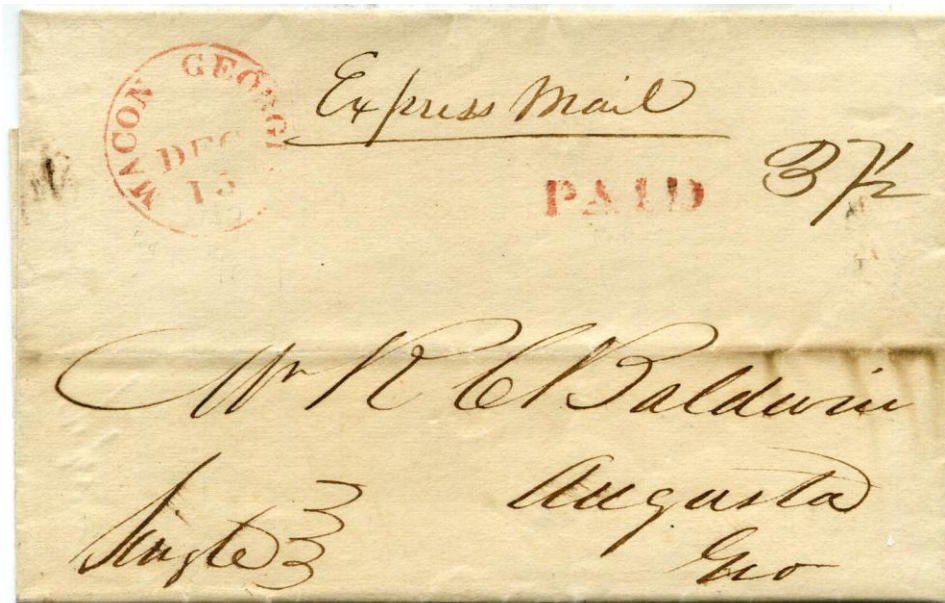 MACON GEORGI
DEC
15
Express Mail
PAID
37½
Mr R C Baldwin
Augusta
Geo
Single